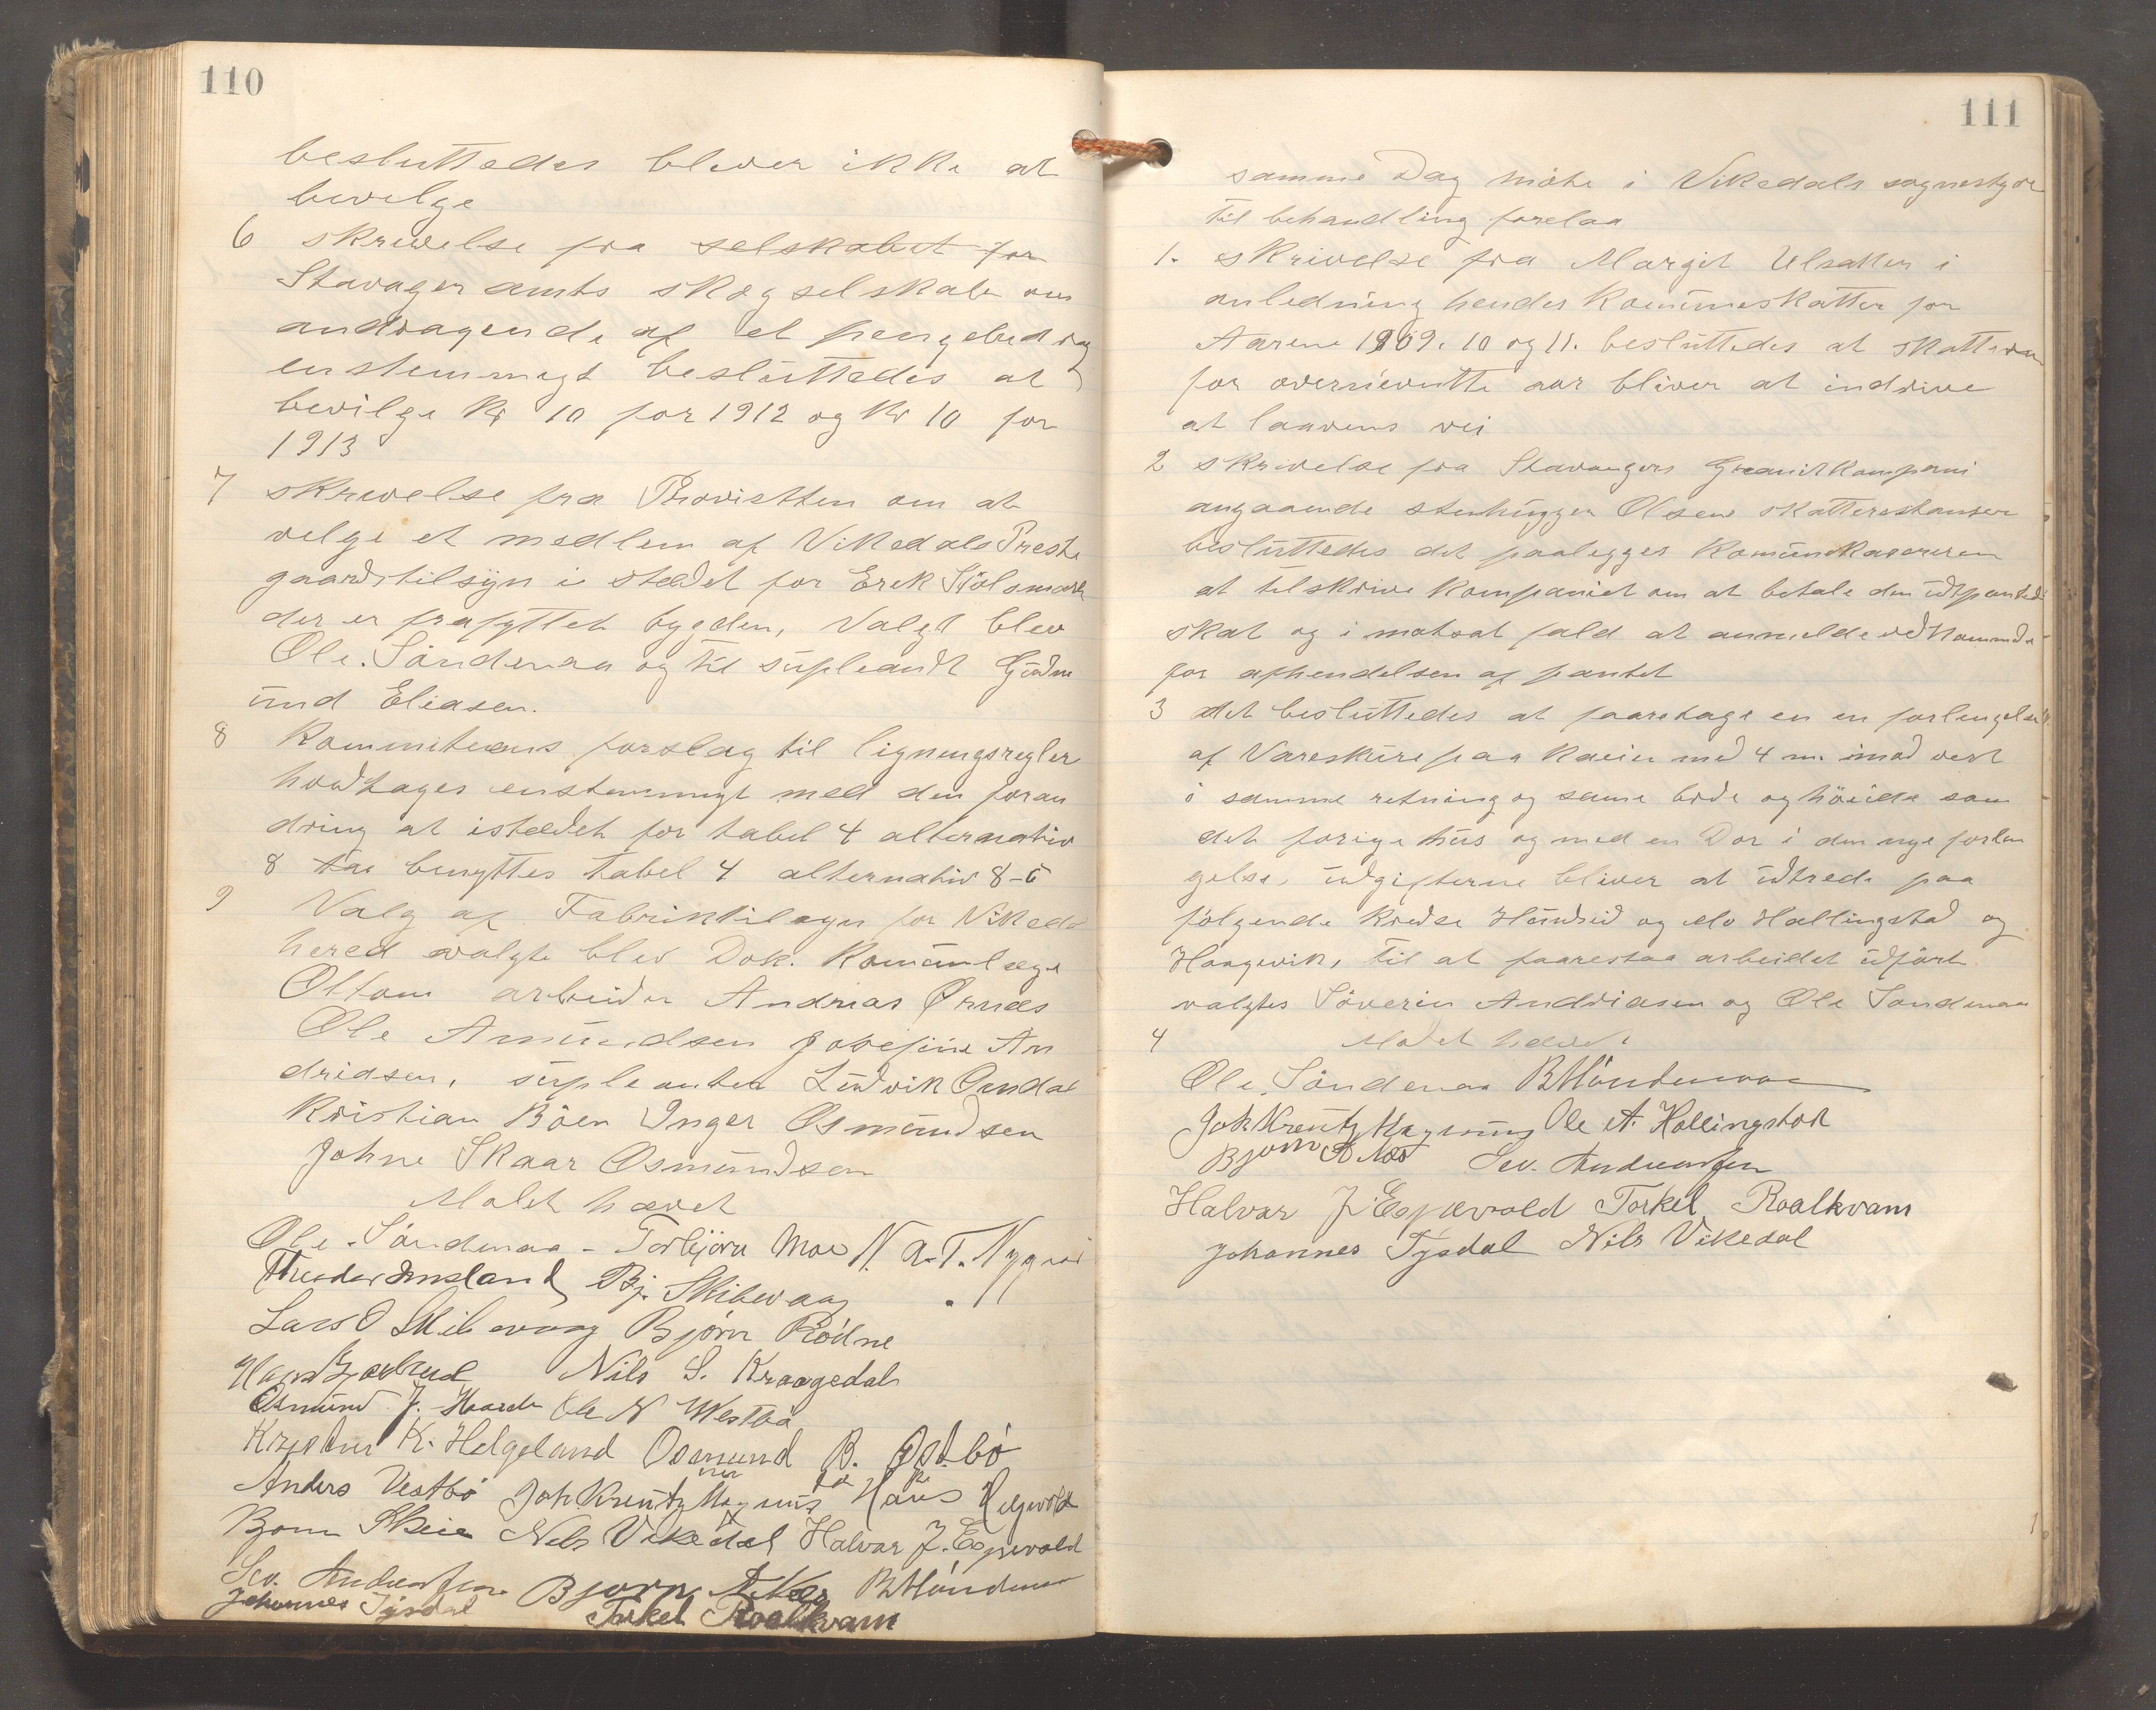 110
besluttedes blever ikke at
bevelge
6 skrivelse fra selskabet for
Stavager amts skogselskab om
andragende af et pengebedrag
enstemmegt besluttedes at
bevilge kr 10 for 1912 og kr 10 for
1913
7 skrivelse fra Provistten om at
velge et medlem af Vikedals Preste
gaardstilsyn i stedet for Erek Sjölsmark
der er frafyttet bygden, Valgt blev
Ole. Söndenaa og til supleandt Gudm
und Eliasen.
8 Kommiteens forslag til ligningsregler
hvedtages enstemmigt med den foran
dring at istedet for tabel 4 alternativ
8 benyttes tabel 4 alternativ 8-6
9 Valg af Fabriktilsyn for Vikedal
hered valgte blev Dok. Komünlæge
Ottom arbeider Andreas Ørnæs
Ole Amundsen Josefine An
driasen, supleanter Ludvik Opndal
Kristian Böen Inger Osmundsen
Johne Skaar Osmundsen
Modet hævet
Ole. Söndenaa - Torbjörn Moe N. A. T. Nygaard
Theodor Imsland Bj. Skibevaag
Lars O Skibevaag Björn Rödne
Hans Nils S. Kraagedal
Osmund J. Ole N Westbö
Kristen K. Helgeland Osmund B. Østbö
Anders Vestbö Joh Kreutz Magnus Hans
Bjorn Skeie Nils Vikedal Halvar J. Espevold
Sev. Andreassen Bjorn A Næs B Höndenaa
Johannes Tysdal Torkel Roalkvam
111
samme Dag möte i Vikedals sognestyre
til behandling forelaa
1. skrivelse fra Margit Ulsatter i
anledning hendes Kommüneskatter for
Aarene 1909. 10 og 11. besluttedes at skatterne
for overnevnte aar bliver at indrive
at laavens vei
2 skrivelse fra Stavangers Granitkompani
angaaende stenhugger Olsens skatterestanser
besluttedes det paalegges Komünekasereren
at tilskrive Kompaniet om at betale den udpanted
skat og i motsat fald at anmelde vedkommende
for afhendelsen af pantet
3 det besluttedes at faaretage en en forlengelse
af Vareskure paa kaien med 4 m. imod vest
i samme retning og same brede og höide som
det forige hus og med en Dor i den nye forlen
gelse, udgifterne bliver at udrede paa
følgende Kredse Hundseid og Mo Hallingstad og
Haagevik, til at faarestaa arbeidet udfört
valgtes Söverin Andriasen og Ole Sondenaa
4 Modet hævet
Ole Söndenaa B Höndenaa
Joh Kreutz Magnus Ole A. Hallingstad
Bjorn A Næs Sev. Andreassen
Halvar J Espevold Torkel Roalkvam
Johannes Tysdal Nils Vikedal